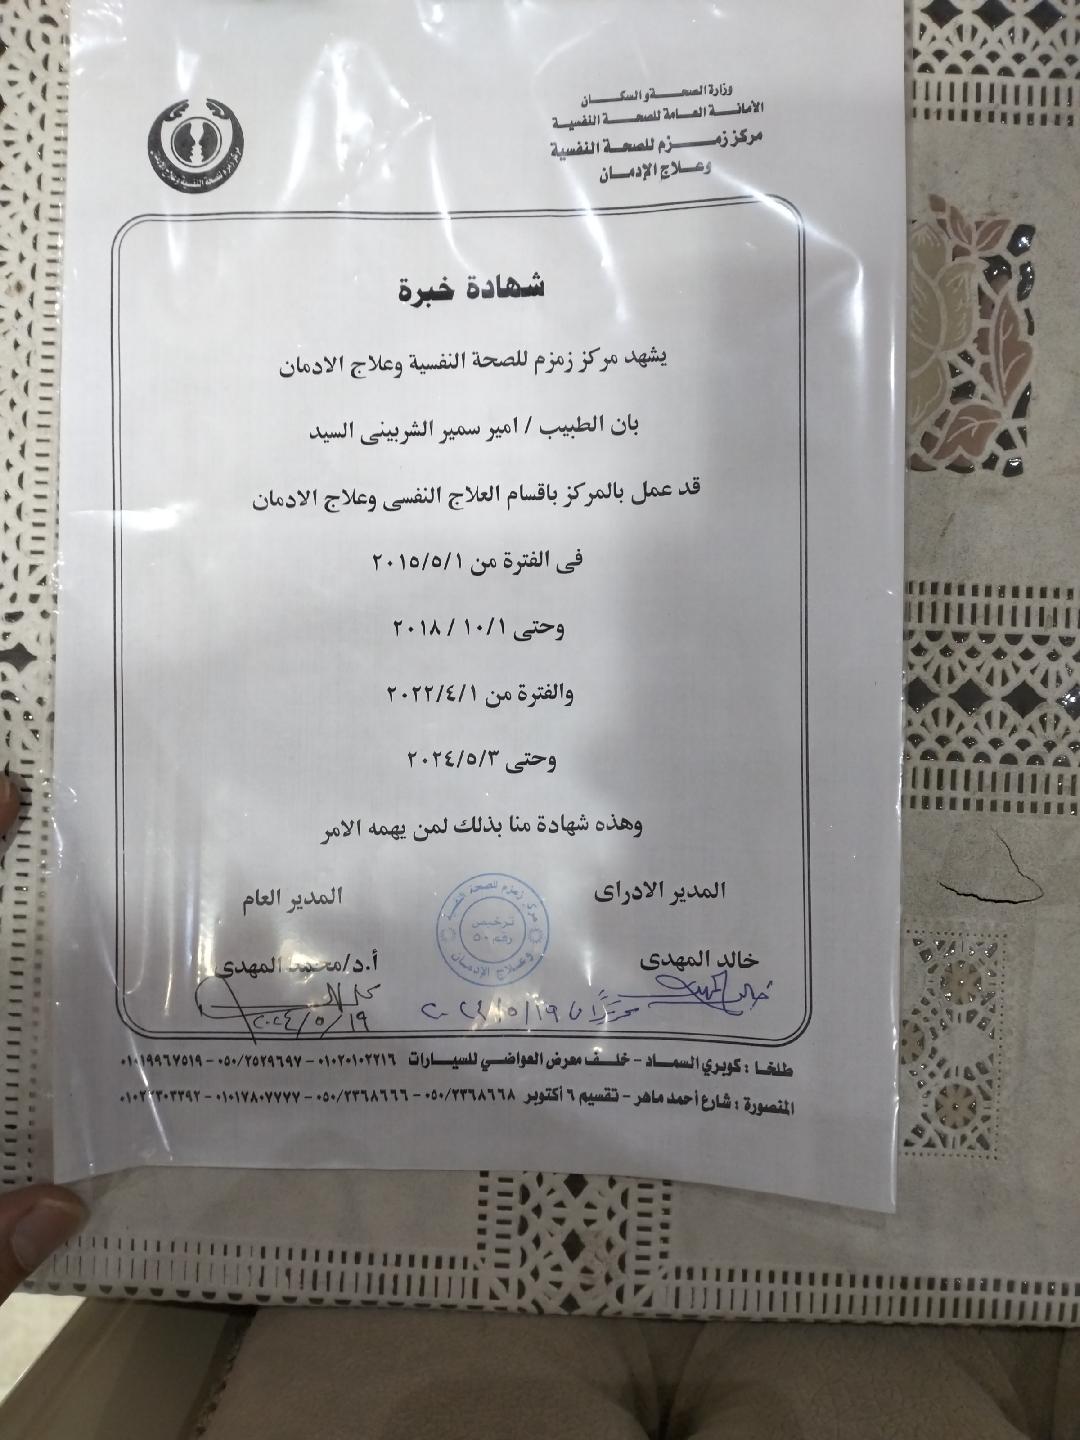 وزارة الصحة والسكان
الأمانة العامة للصحة النفسية
مركز زمزم للصحة النفسية
وعلاج الإدمان
مركز زمزم للصحة النفسية وعلاج الإدمان
شهادة خبرة
يشهد مركز زمزم للصحة النفسية وعلاج الادمان
بان الطبيب / امير سمير الشربينى السيد
قد عمل بالمركز باقسام العلاج النفسى وعلاج الادمان
فى الفترة من ٢٠١٥/٥/١
وحتى ٢٠١٨ / ١٠/١
والفترة من ٢٠٢٢/٤/١
وحتى ٢٠٢٤/٥/٣
وهذه شهادة منا بذلك لمن يهمه الامر
المدير الادراى
المدير العام
مركز زمزم للصحة النفسية
ترخيص
رقم ٥٠
وعلاج الإدمان
خالد المهدى
أ.د/محمد المهدى
خالد المهدى
٢٠٢٤/٥/١٩
٢٠٢٤/٥/١٩
طلخا : كوبري السماد - خلف معرض العواضي للسيارات ٠١٠٢٠١٠٢٢١٦ - ٠٥٠/٢٥٢٩٦٩٧ - ٠١٠١٩٩٦٧٥١٩
المنصورة : شارع أحمد ماهر - تقسيم ٦ أكتوبر ٠٥٠/٢٣٦٨٦٦٨ - ٠٥٠/٢٣٦٨٦٦٦ - ٠١٠١٧٨٠٧٧٧٧ -